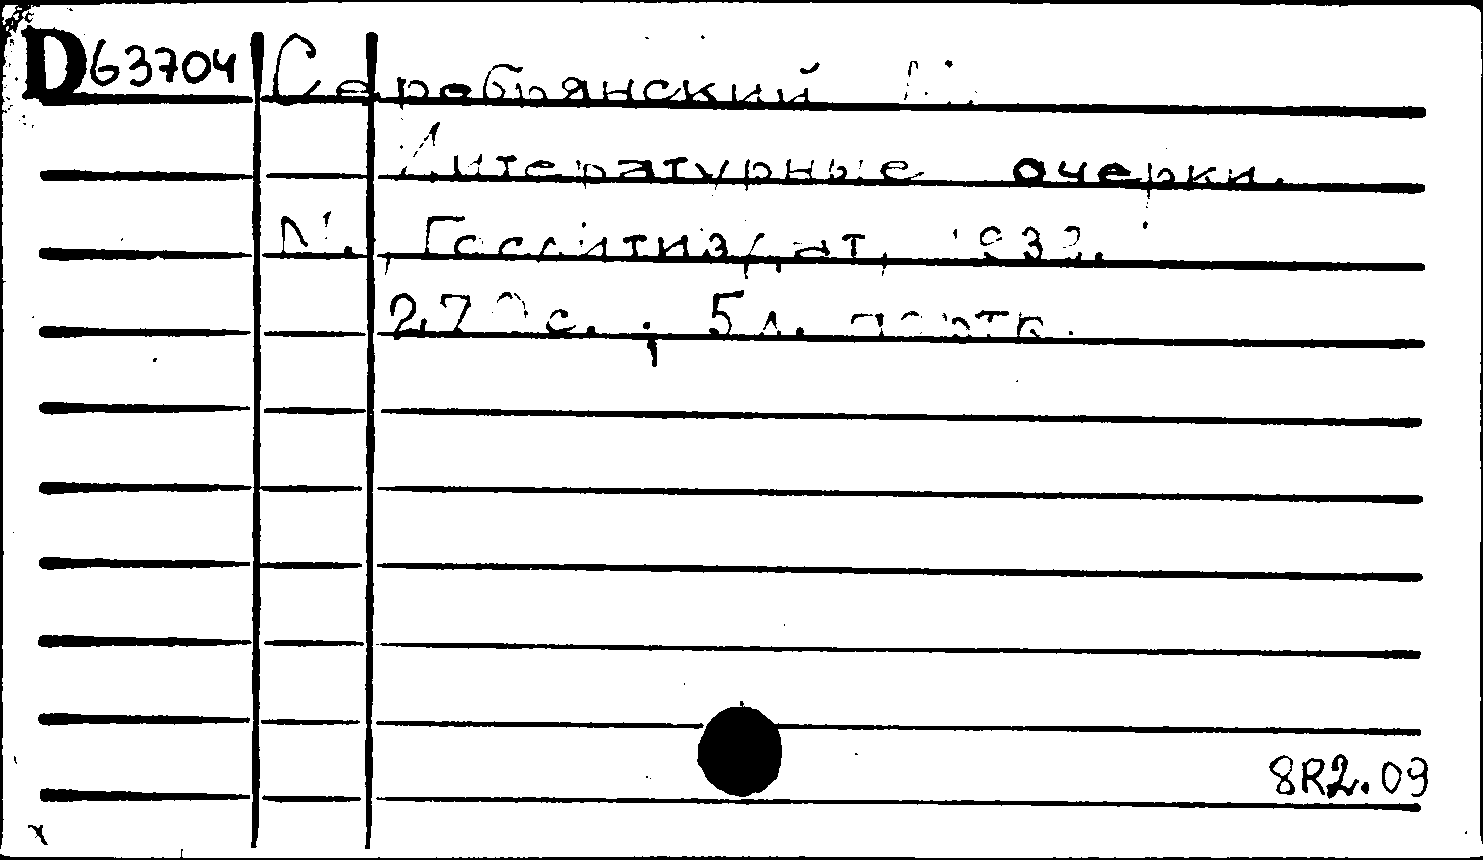 D63704 Серебрянский М.
Литературные очерки.
М., Гослитиздат,
с., 5 л. портр.
8R2.09